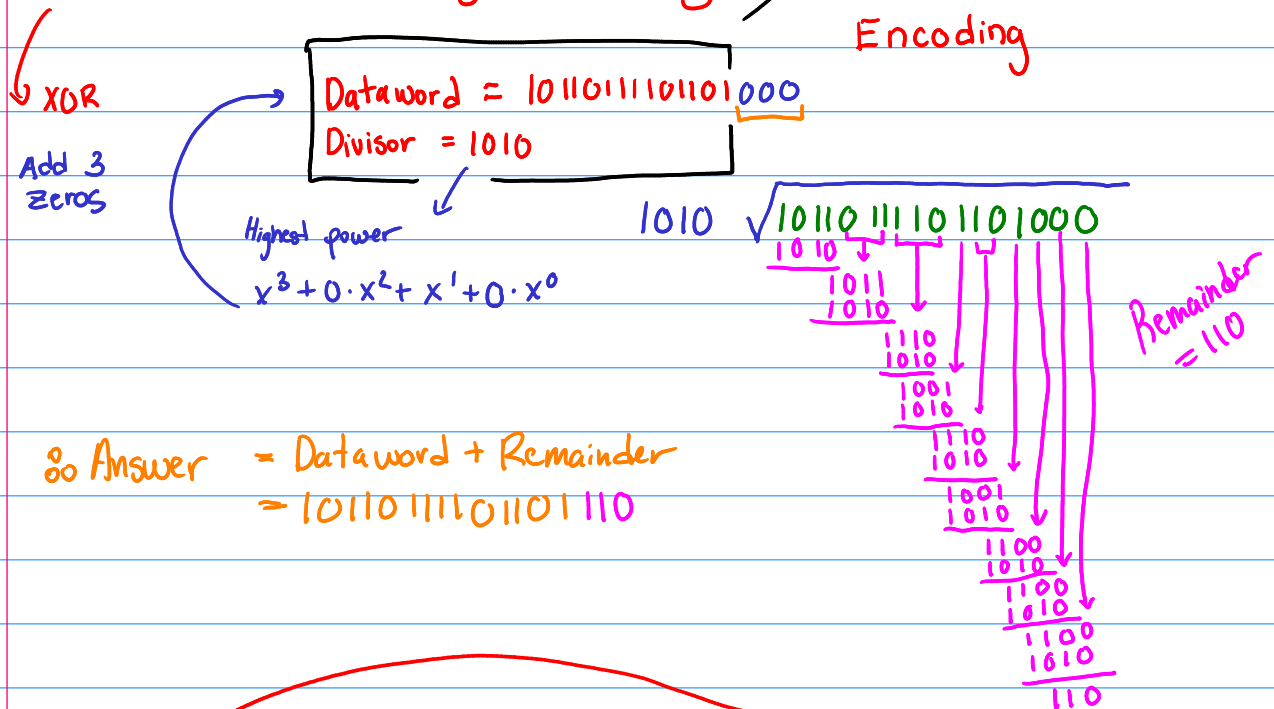 Encoding
XOR
Dataword = 10110111101101000
Divisor = 1010
Add 3
Zeros
Highest power
x³ + 0·x² + x¹ + 0·x⁰
1010 √10110111101101000
1010
1011
1010
1110
1010
1001
1010
1110
1010
1001
1010
1100
1010
1100
1010
1100
1010
110
Remainder
= 110
∴ Answer = Dataword + Remainder
= 10110111101101110